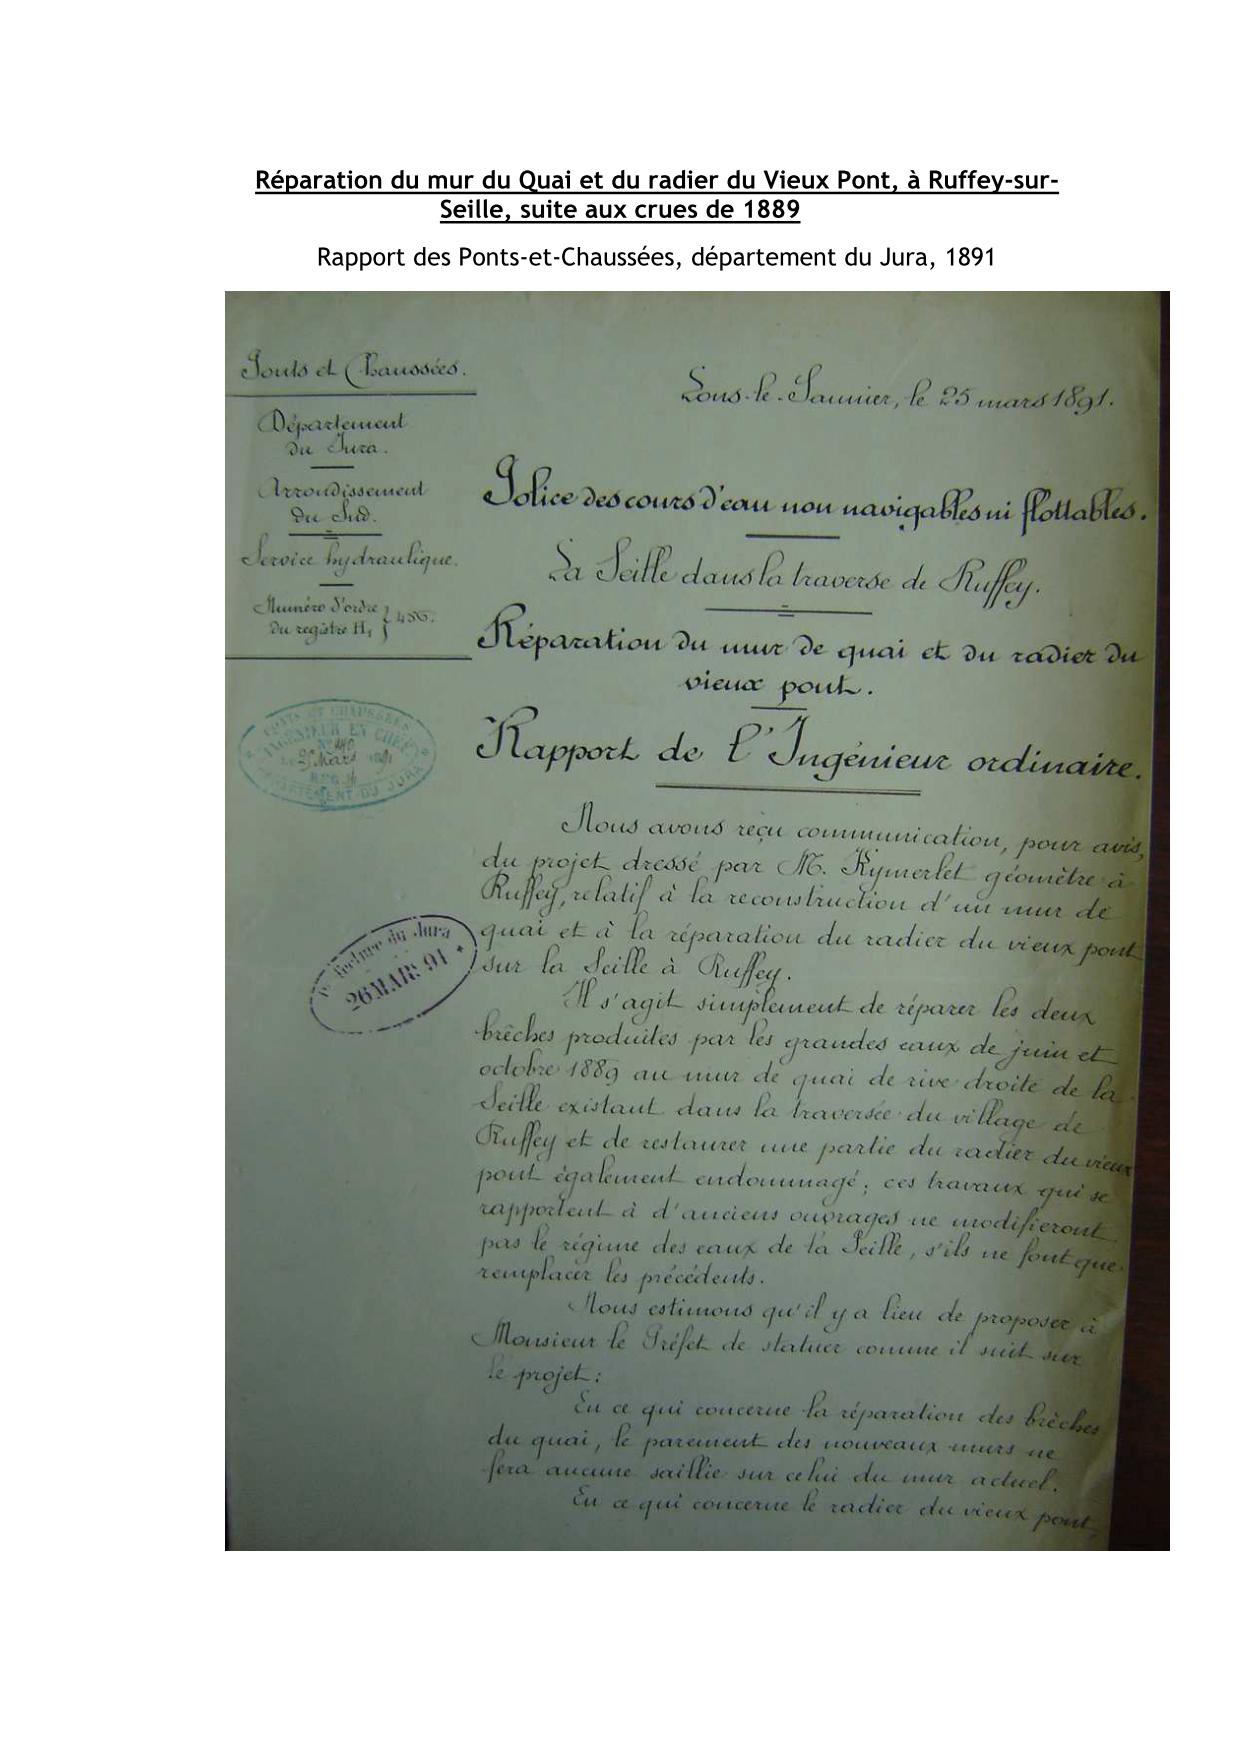 Réparation du mur du Quai et du radier du Vieux Pont, à Ruffey-sur-
Seille, suite aux crues de 1889
Rapport des Ponts-et-Chaussées, département du Jura, 1891
Ponts et Chaussées.
Département
du Jura.
Arrondissement
du Sud.
Service hydraulique.
Numéro d'ordre
du registre H, } 456.
PONTS ET CHAUSSÉES
INGÉNIEUR EN CHEF
25 Mars 1891
DÉPARTEMENT DU JURA
Lons-le-Saunier, le 25 mars 1891.
Police des cours d'eau non navigables ni flottables.
La Seille dans la traverse de Ruffey.
Réparation du mur de quai et du radier du
vieux pont.
Rapport de l'Ingénieur ordinaire.
Nous avons reçu communication, pour avis,
du projet dressé par M. Rymerlet géomètre à
Ruffey, relatif à la reconstruction d'un mur de
quai et à la réparation du radier du vieux pont
sur la Seille à Ruffey.
Préfecture du Jura
26 MARS 91
Il s'agit simplement de réparer les deux
brêches produites par les grandes eaux de juin et
octobre 1889 au mur de quai de rive droite de la
Seille existant dans la traversée du village de
Ruffey et de restaurer une partie du radier du vieux
pont également endommagé ; ces travaux qui se
rapportent à d'anciens ouvrages ne modifieront
pas le régime des eaux de la Seille, s'ils ne font que
remplacer les précédents.
Nous estimons qu'il y a lieu de proposer à
Monsieur le Préfet de statuer comme il suit sur
le projet :
En ce qui concerne la réparation des brêches
du quai, le parement des nouveaux murs ne
fera aucune saillie sur celui du mur actuel.
En ce qui concerne le radier du vieux pont,